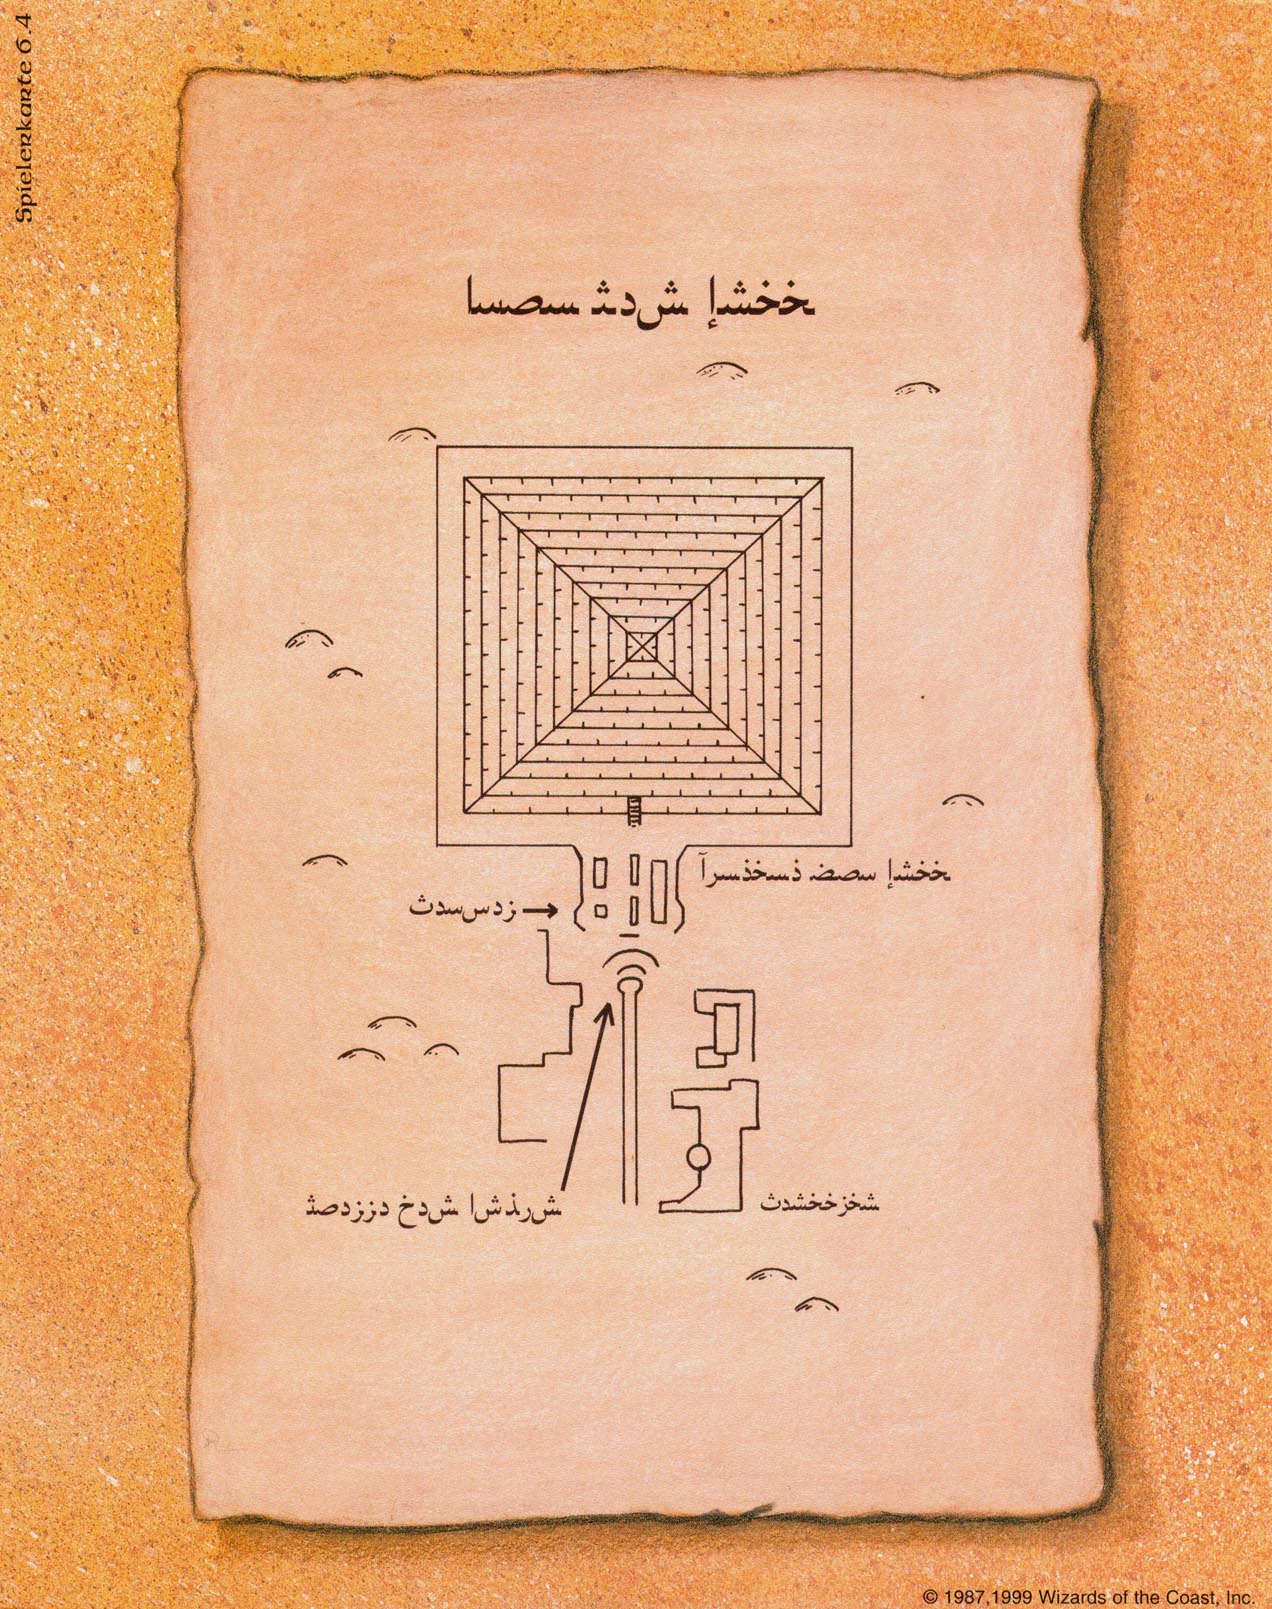 Spielerkarte 6.4
خخشدإ شدث سصسا
خخشدإ سصضہ ذسخذسرآ
زدسسدث
شرذشا شدخ دززدصث
شخزخخشدث
© 1987,1999 Wizards of the Coast, Inc.